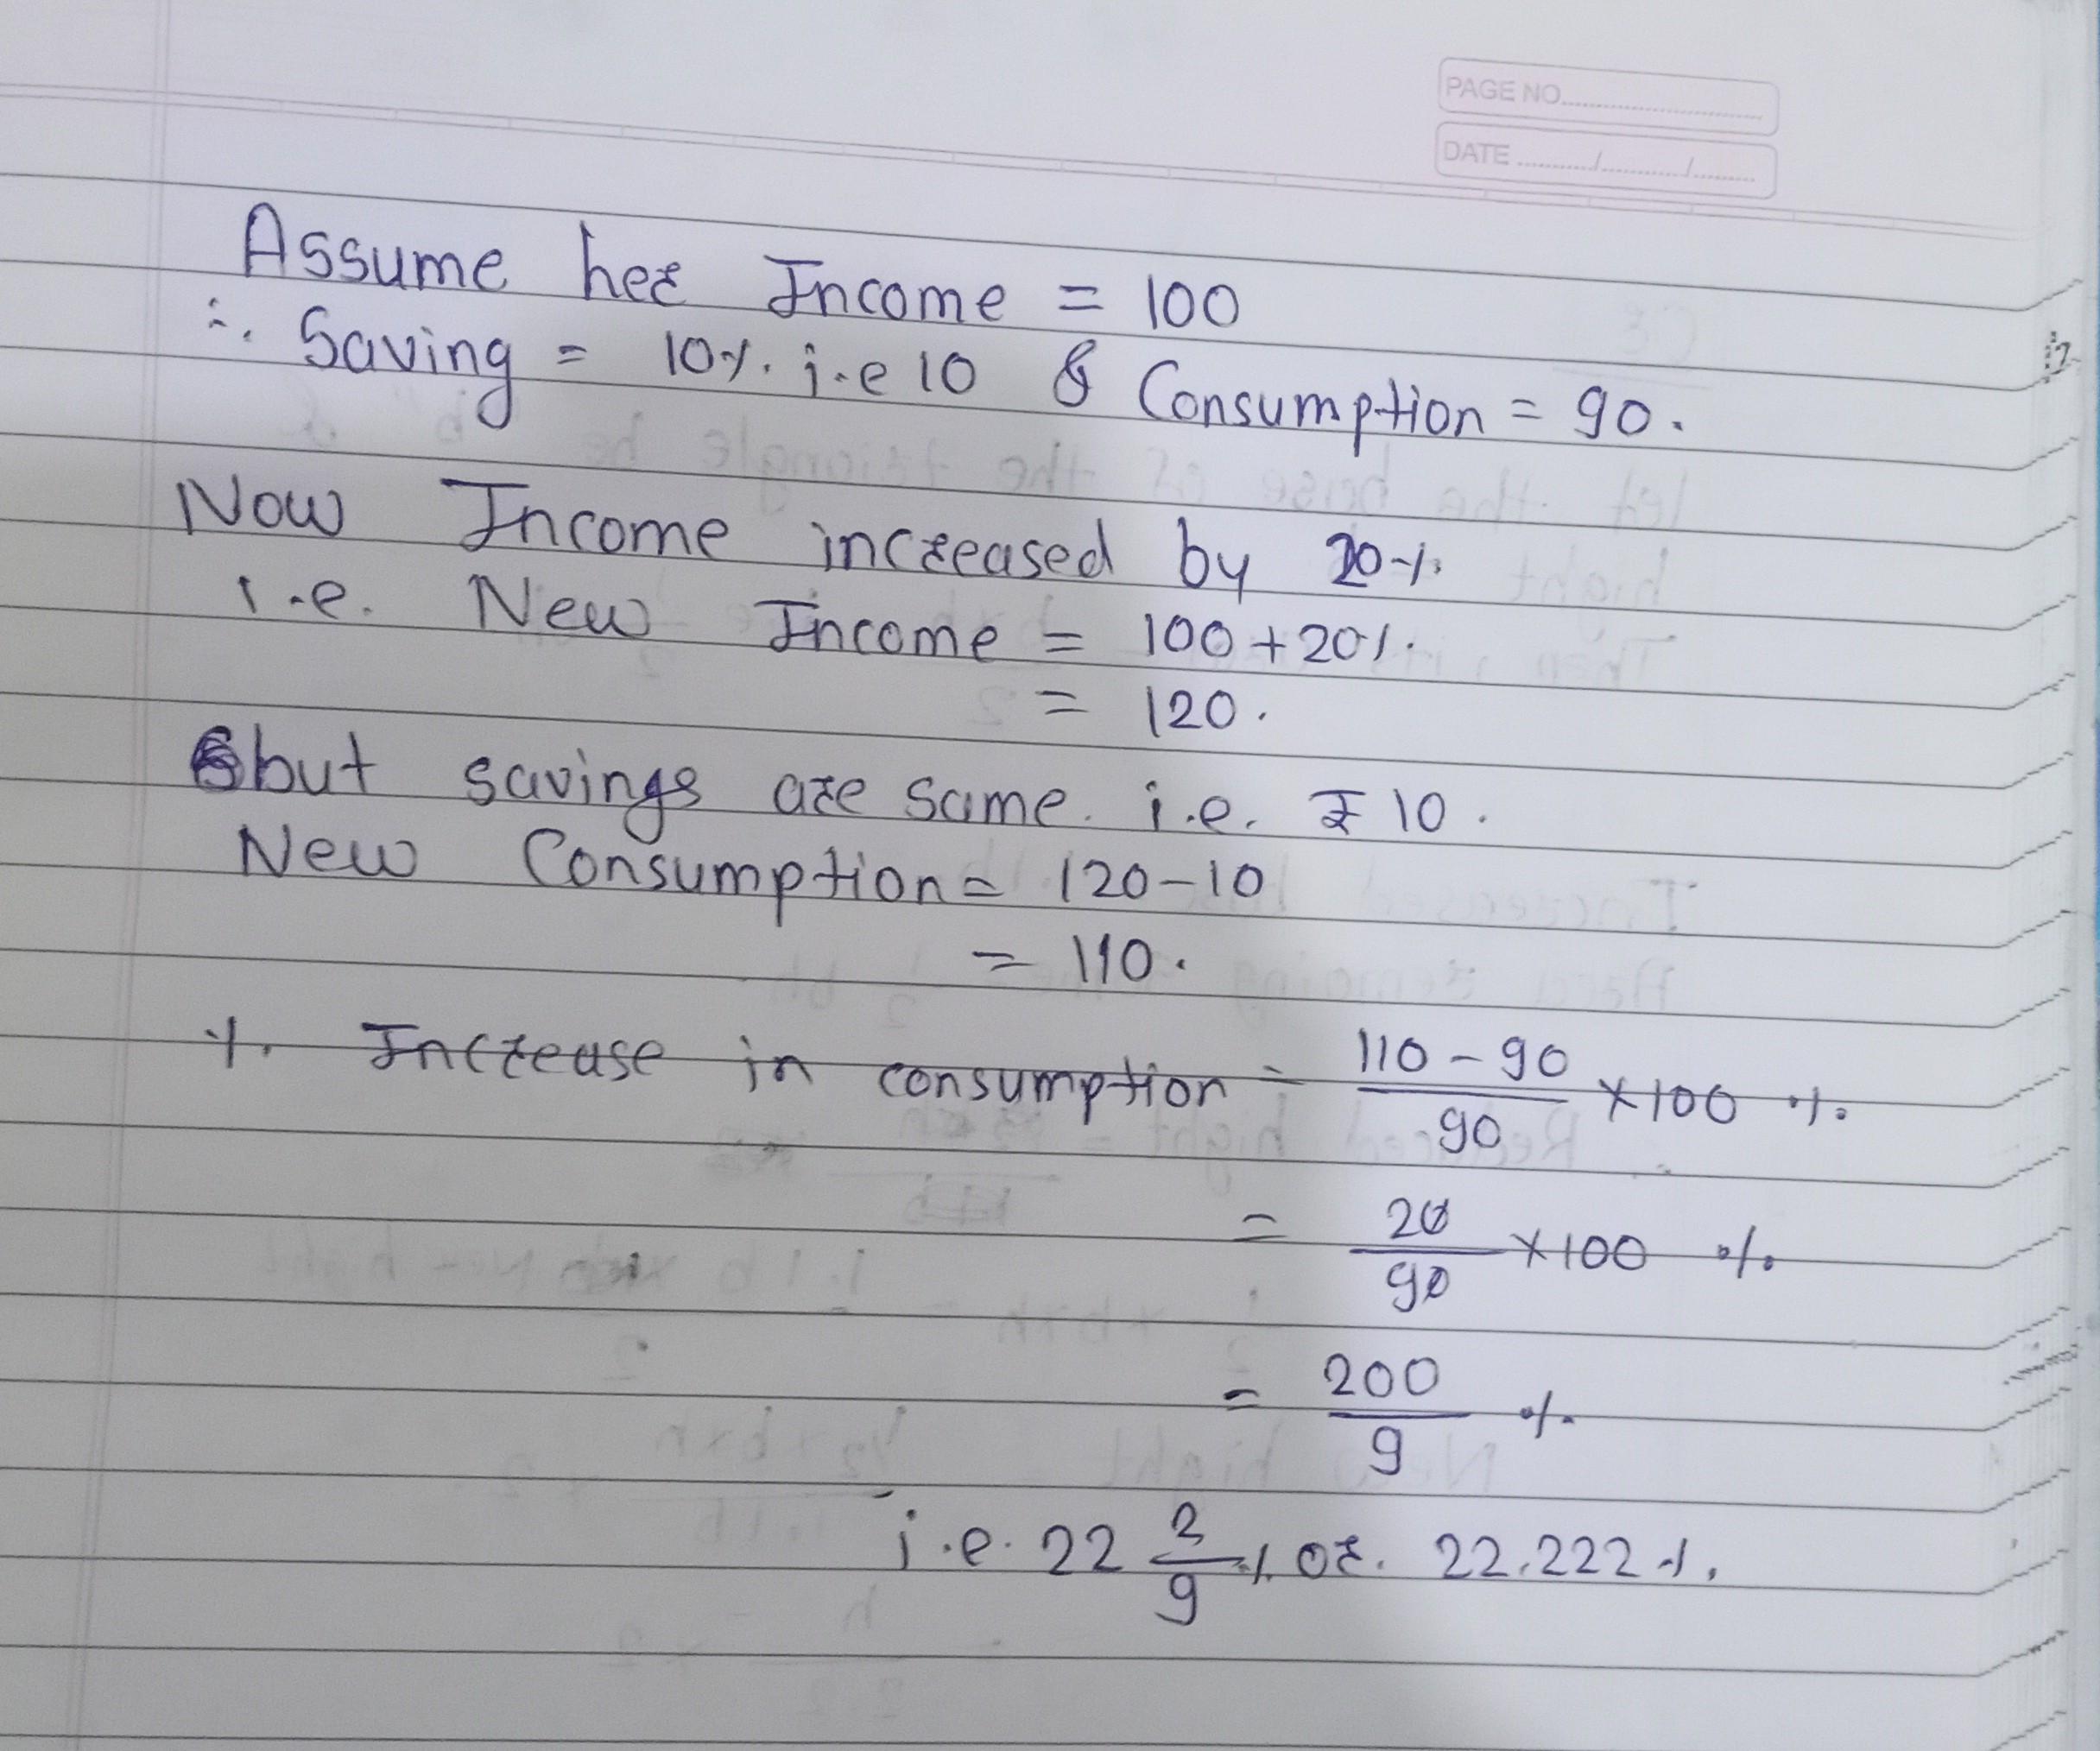 PAGE NO.
DATE / /
Assume her Income = 100
∴ Saving = 10%. i.e 10 & Consumption = 90.
Now Income increased by 20%
i.e. New Income = 100 + 20%.
= 120.
but savings are same. i.e. ₹ 10.
New Consumption = 120 - 10
= 110.
% Increase in consumption = 110 - 90 / 90 × 100 %
= 20 / 90 × 100 %
= 200 / 9 %
i.e. 22 2/9 % or. 22.222 %.